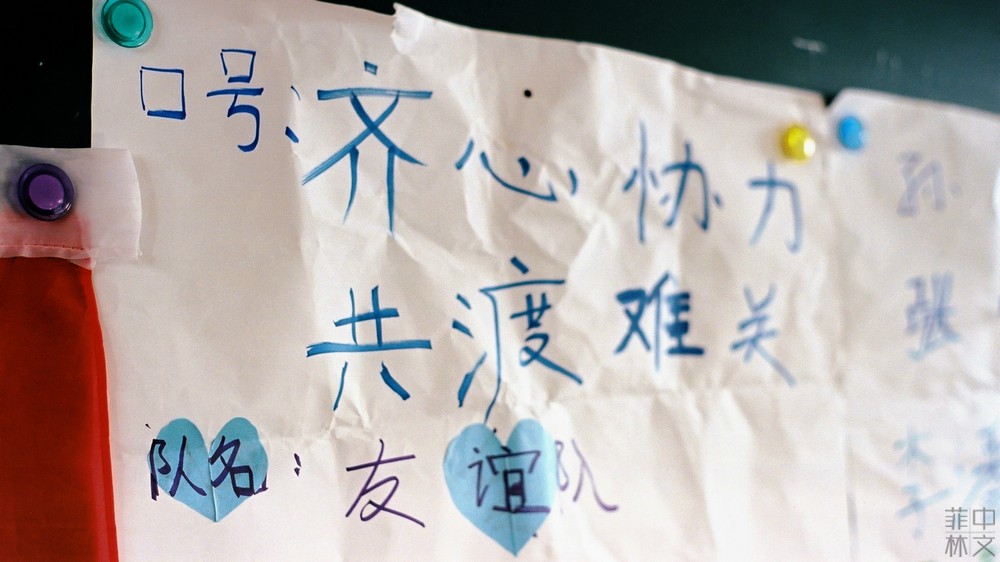 口号:齐心协力
共渡难关
队名:友谊队
孙
张
李
菲中
林文